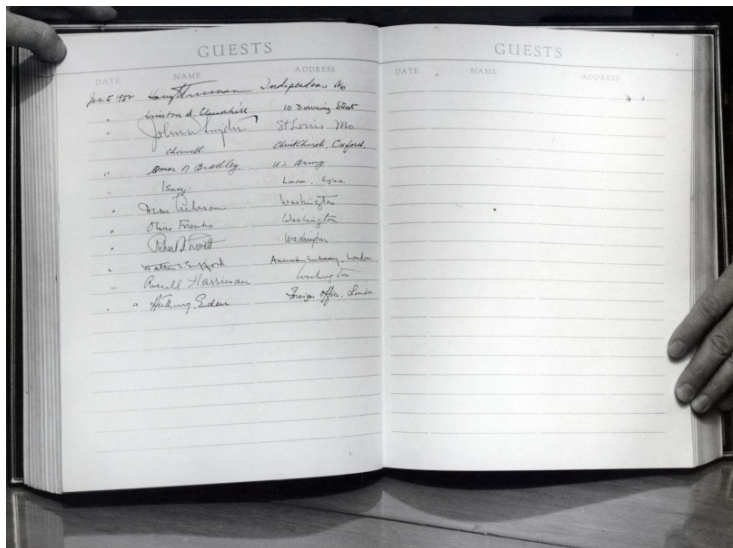 GUESTS
DATE NAME ADDRESS
Jan 5 1952 Harry Truman Independence Mo
" Winston S. Churchill 10 Downing Street
" John W Snyder St Louis Mo
Cherwell Christ Church, Oxford.
" Omar N Bradley U.S. Army
" Ismay London, England
" Dean Acheson Washington
" Oliver Franks Washington
" Robert A Lovett Washington
" Walter S. Gifford American Embassy, London
" Averell Harriman Washington
" " Anthony Eden Foreign Office, London
GUESTS
DATE NAME ADDRESS